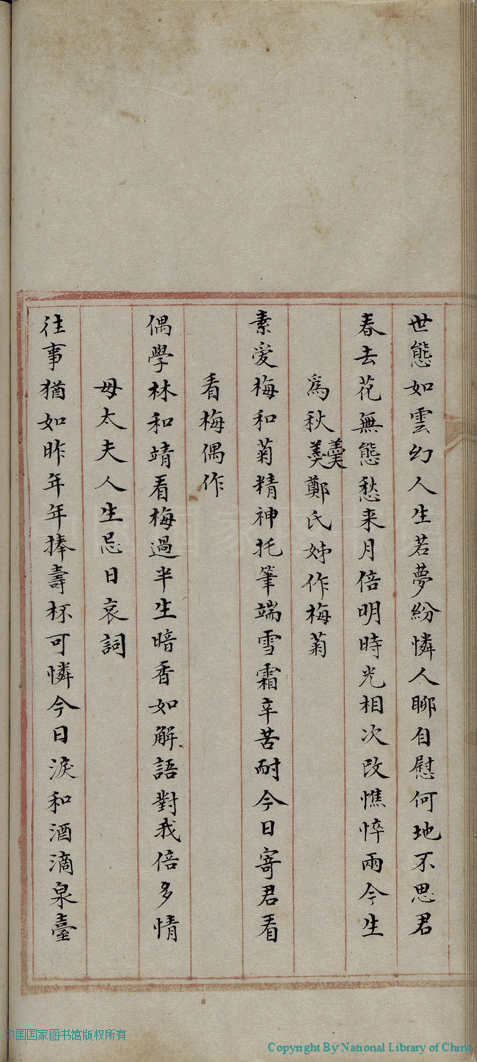 世態如雲幻人生若夢紛憐人聊自慰何地不思君
春去花無態愁来月倍明時光相次改憔悴兩今生
爲秋羹鄭氏姊作梅菊
素愛梅和菊精神托筆端雪霜辛苦耐今日寄君看
看梅偶作
偶學林和靖看梅過半生暗香如解語對我倍多情
母太夫人生忌日哀詞
往事猶如昨年年捧壽杯可憐今日淚和酒滴泉臺
国国家图书馆版权所有
Copyright By National Library of China